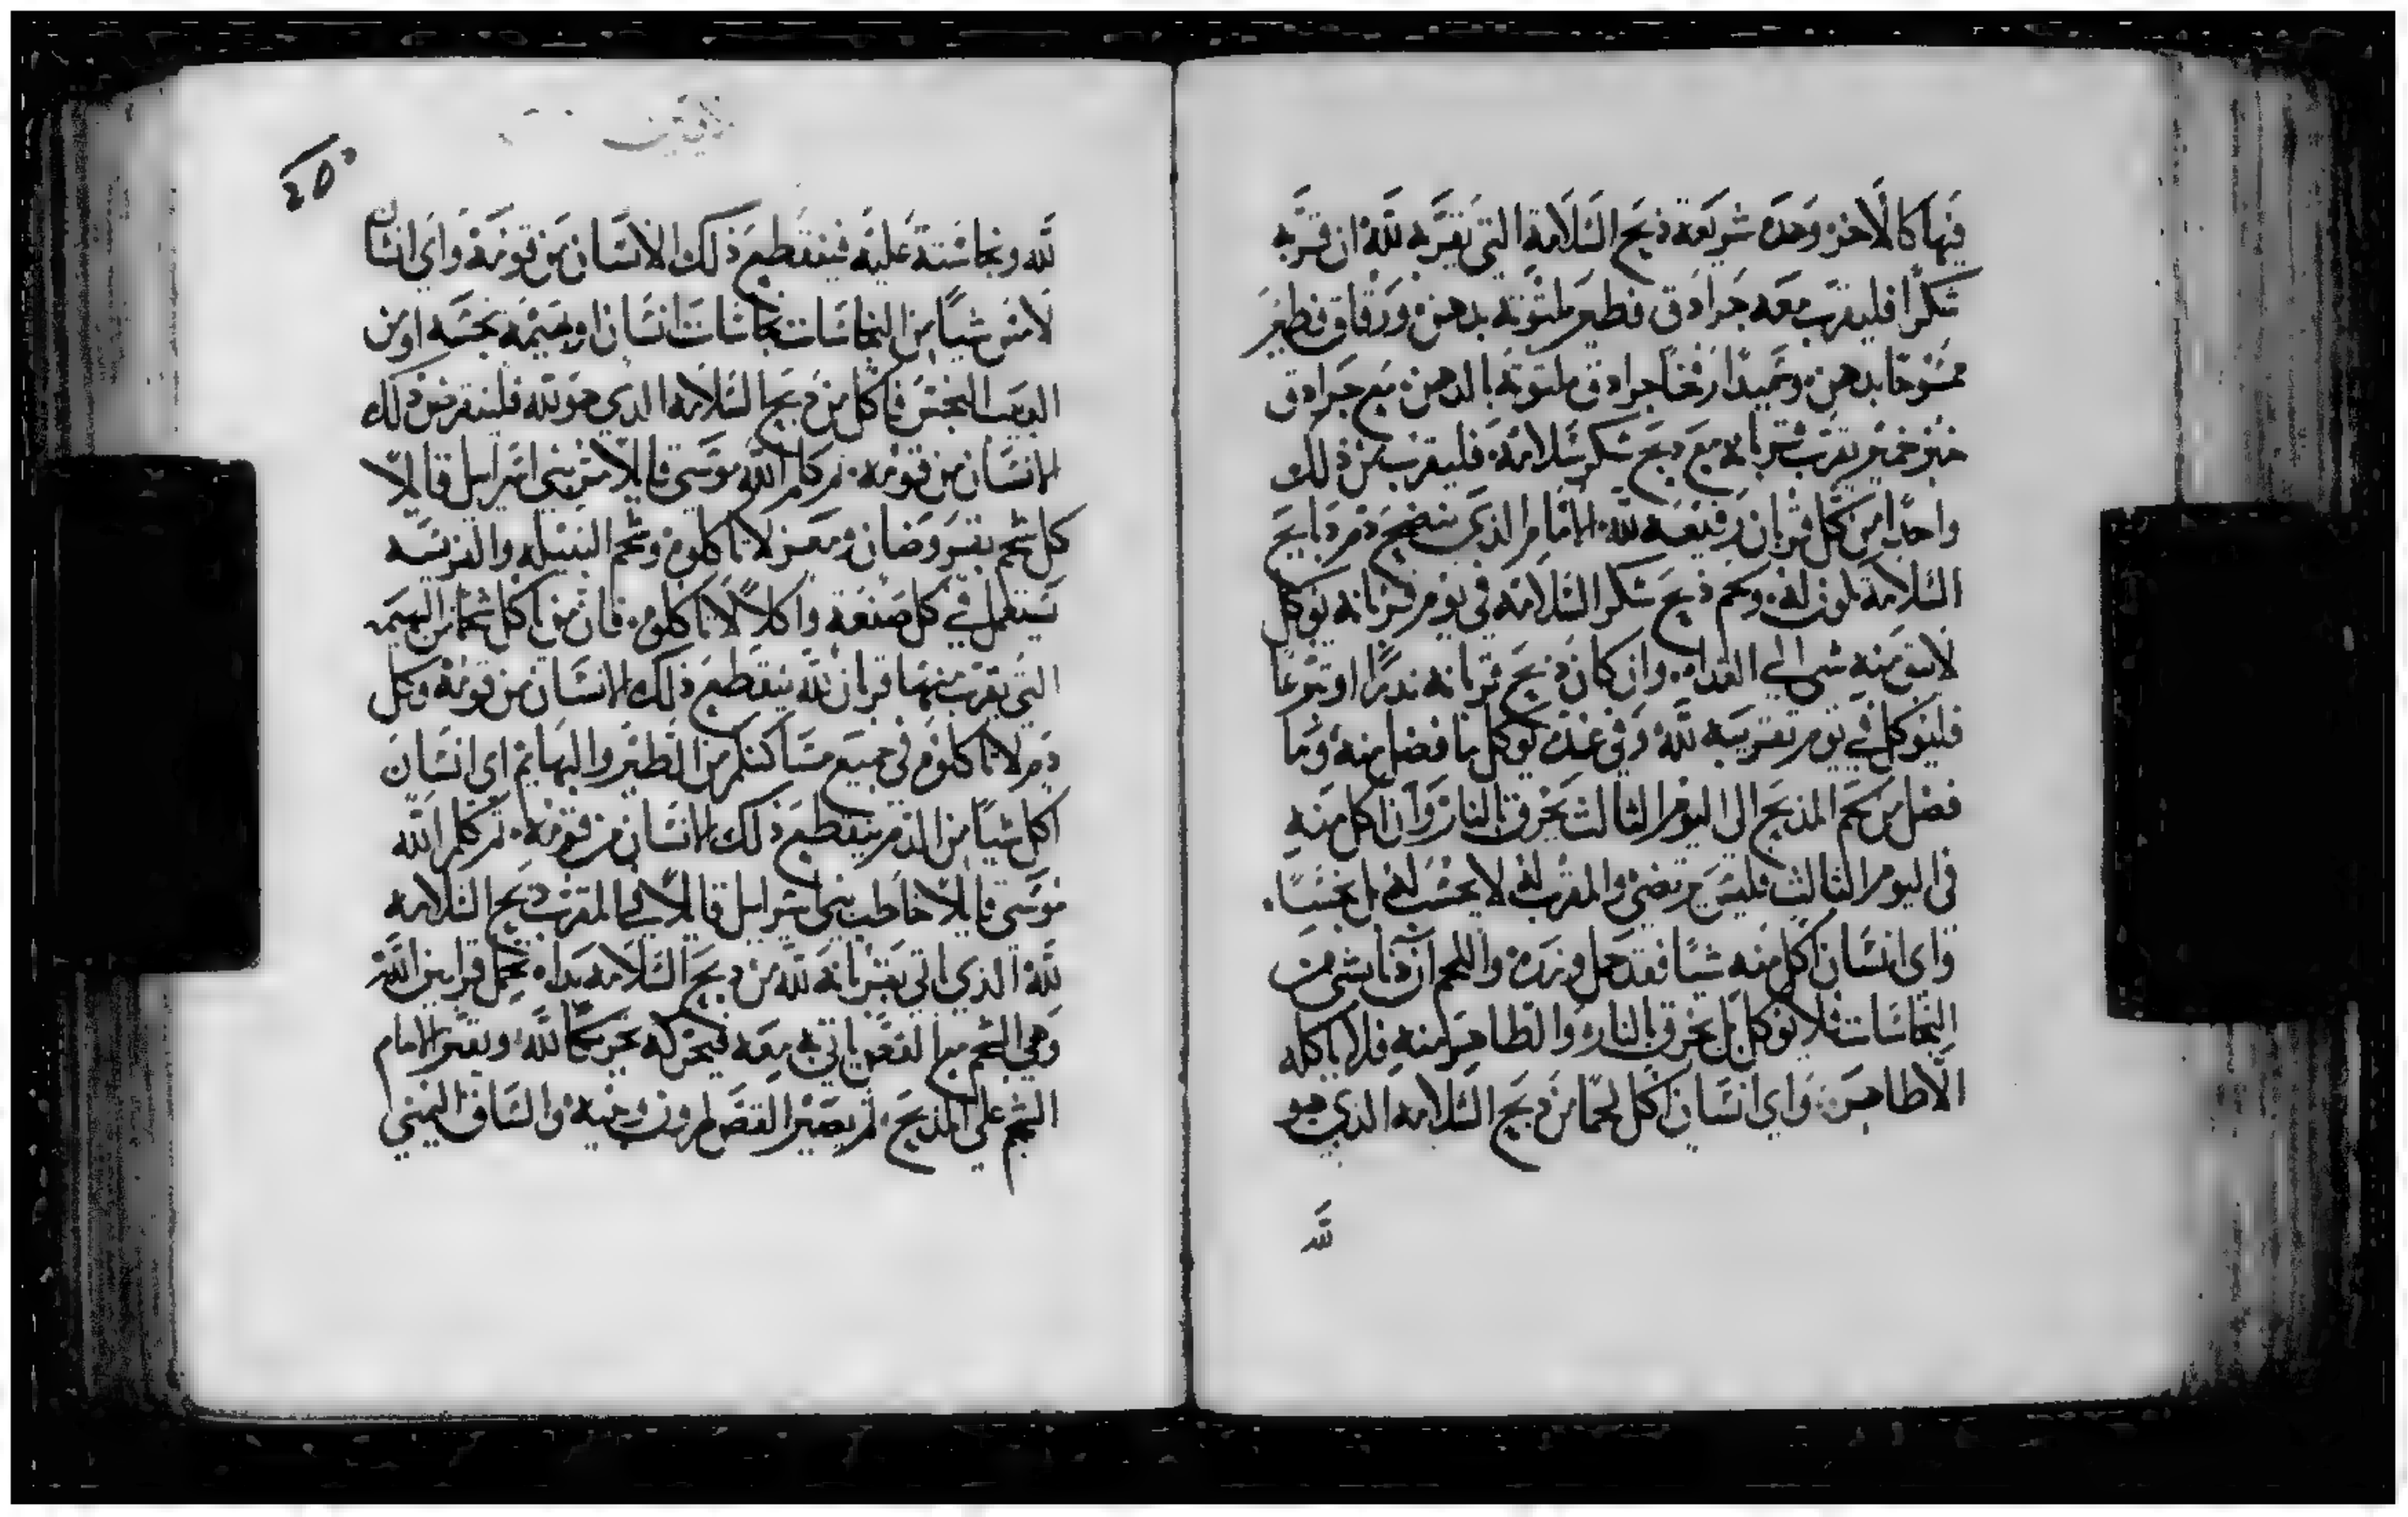 فيها كالاخر وحده شريعة ذبح السلامة التي يقربه لله ان قربه
شكرًا فليقرب معه جرادق فطير ملتوته بدهن ورقاق فطير
ممسوحا بدهن وسميدًا جرادق ملتوتة بالدهن مع جرادق
خبز خمير يقرب قربانه مع ذبح شكر سلامته فليقرب من ذلك
واحدًا من كل قربان رفيعه لله الامام الذي ينضح دم ذبايح
السلامة تكون له ولحم ذبح شكر السلامه في يوم قربانه يوكل
لا يبق منه شي الي الغداه وان كان ذبح قربانه ندرًا او تبرعًا
فليوكل في يوم تقريبه لله وفي غده يوكل ما فضل منه وما
فضل من لحم المذبح الى اليوم الثالث يحرق بالنار وان اكل منه
في اليوم الثالث فليس يرتضي والمقرب له لا يحسب له بل نجسًا
واي انسان اكل منه شيًا فقد حمل وزره واللحم ان دنا بشي من
النجاسات فلا يوكل بل يحرق بالنار والطاهر منه فلا ياكله
الا طاهر واي انسان اكل لحمًا من ذبح السلامه الذي هو
لله
الاويين
250
لله ونجاسته عليه فينقطع ذلك الانسان من قومه واي انسان
لامس شيًا من النجاسات نجاسات انسان او بهيمه نجسه او من
الدبيب النجس فاكل من ذبح السلامه الذي هو لله فلينقرض ذلك
الانسان من قومه ثم كلم الله موسي قايلا مر بني اسراييل قايلًا
كل شحم بقر وضان ومعز لا تاكلوه وشحم النبيله والفريسه
يستعمل في كل صنعة واكلًا لا تاكلوه فان من اكل شحمًا من البهيمه
التي يقرب منها قربان لله ينقطع ذلك الانسان من قومه وكل
دم لا تاكلوه في جميع مساكنكم من الطير والبهايم اي انسان
اكل شيًا من الدم ينقطع ذلك الانسان من قومه ثم كلم الله
موسي قايلًا خاطب بني اسراييل قايلًا المقرب ذبح السلامه
لله الذي اتي بقربانه لله من ذبح السلامه يداه تحمل قرابين الله
وهي الشحم مع القص ياتي به معه فيحركه تحريكًا لله ويقتر الامام
الشحم علي المذبح ثم يصير القص لهرون وبنيه والساق اليمني